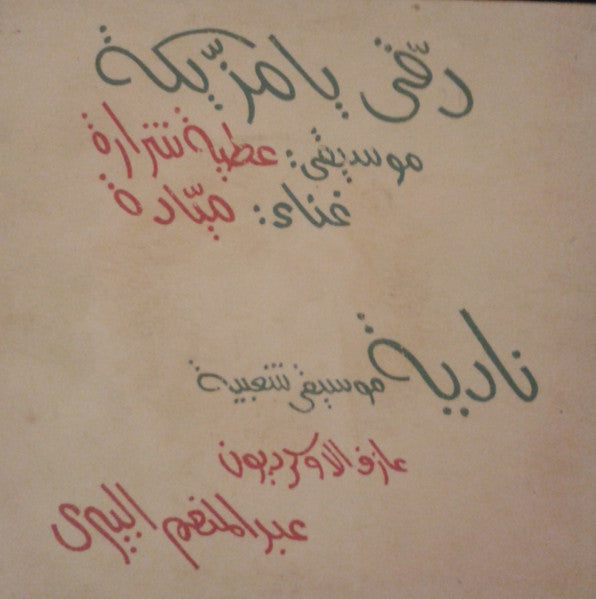 دقّي يا مزّيكة
موسيقى: عطية شرارة
غناء: ميّادة
نادية موسيقى شعبية
عازف الاوكرديون
عبد المنعم